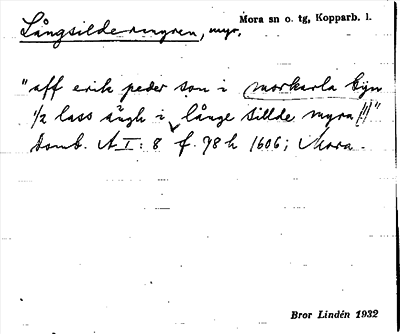 Långsildemyren, myr. Mora sn o. tg, Kopparb. l.
"aff erik peder son i morkarla byn
1/2 lass ängh i långe sillde myra (!)"
Domb. A I: 8 f. 98 h 1606; Mora.
Bror Lindén 1932